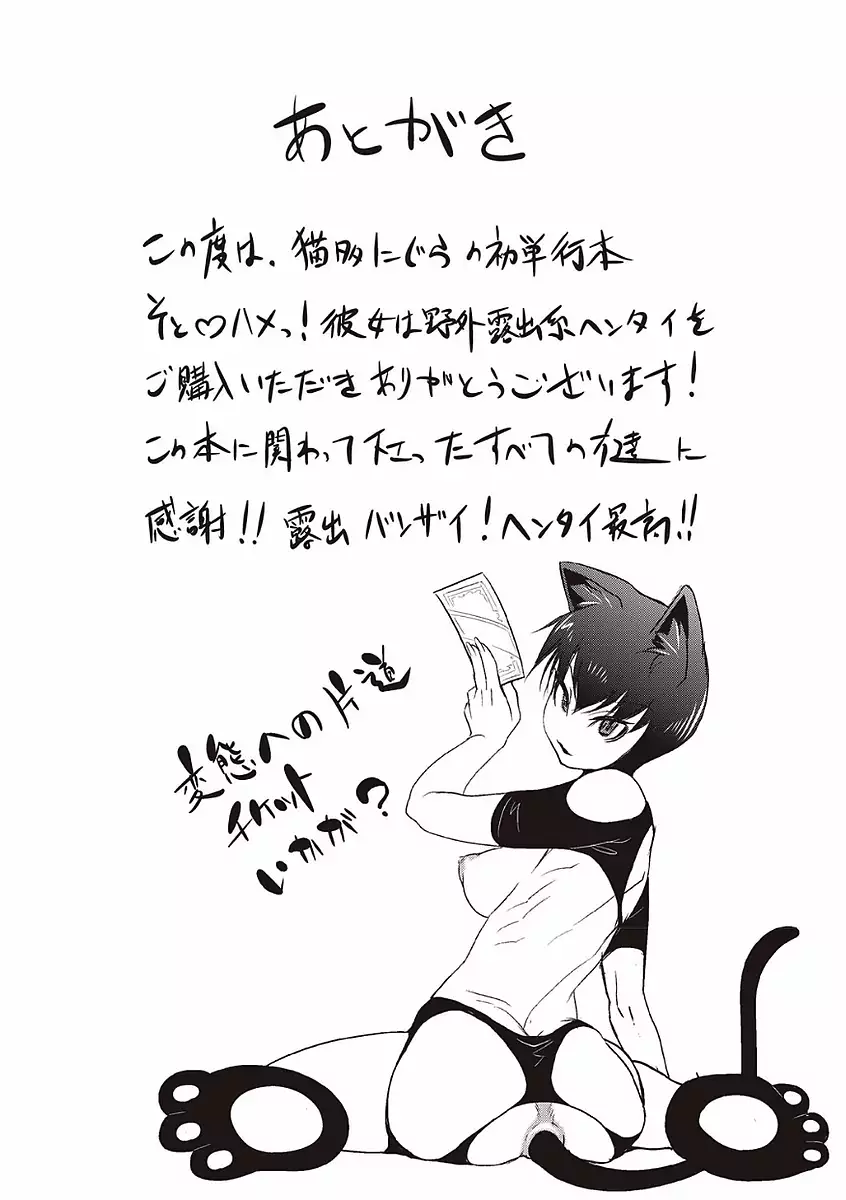 あとがき
この度は、猫男爵にぐらの初単行本
そと♡ハメっ!彼女は野外露出系ヘンタイを
ご購入いただきありがとうございます!
この本に関わって下さったすべての方達に
感謝!!露出バンザイ!ヘンタイ最高!!
変態への片道
チケット
いかが?